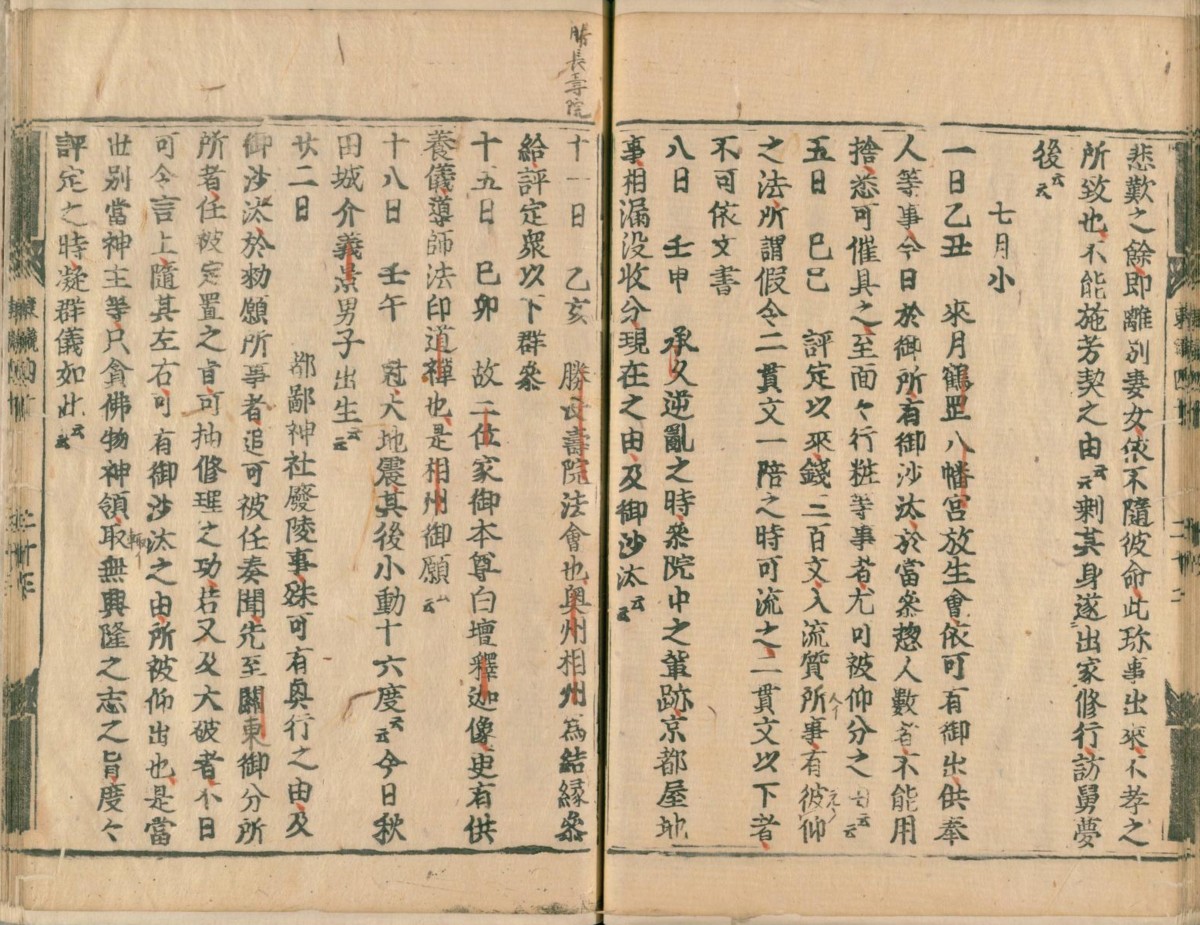 悲歎之餘即離別妻女依不隨彼命此珎事出來不孝之
所致也不能施芳契之由云云剩其身遂出家修行訪舅夢
後云云
七月小
一日乙丑 來月鶴罡八幡宮放生會依可有御出供奉
人等事今日於御所有御沙汰於當参惣人數者不能用
捨悉可催具之至面々行粧等事者尤可被仰分之旨云云
五日 巳巳 評定以來錢二百文入流質所事有彼仰
之法所謂假令二貫文一陪之時可流之二貫文以下者
不可依文書
八日 壬申 承久逆亂之時参院中之軰跡京都屋地
事相漏没收分現在之由及御沙汰云云
勝長壽院
十一日 乙亥 勝長壽院法會也奥州相州爲結縁参
給評定衆以下群参
十五日 巳卯 故二位家御本尊白壇釋迦像吏有供
養儀導師法印道禪也是相州御願云云
十八日 壬午 冠大地震其後小動十六度云云今日秋
田城介義景男子出生云云
廿二日 都鄙神社廢陵事殊可有奥行之由及
御沙汰於勑願所事者追可被任奏聞先至關東御分所
所者任被定置之旨可抽修理之功若又及大破者不日
可令言上隨其左右可有御沙汰之由所被仰出也是當
世別當神主等只貪佛物神領取無興隆之志之旨度々
評定之時凝群儀如此云云